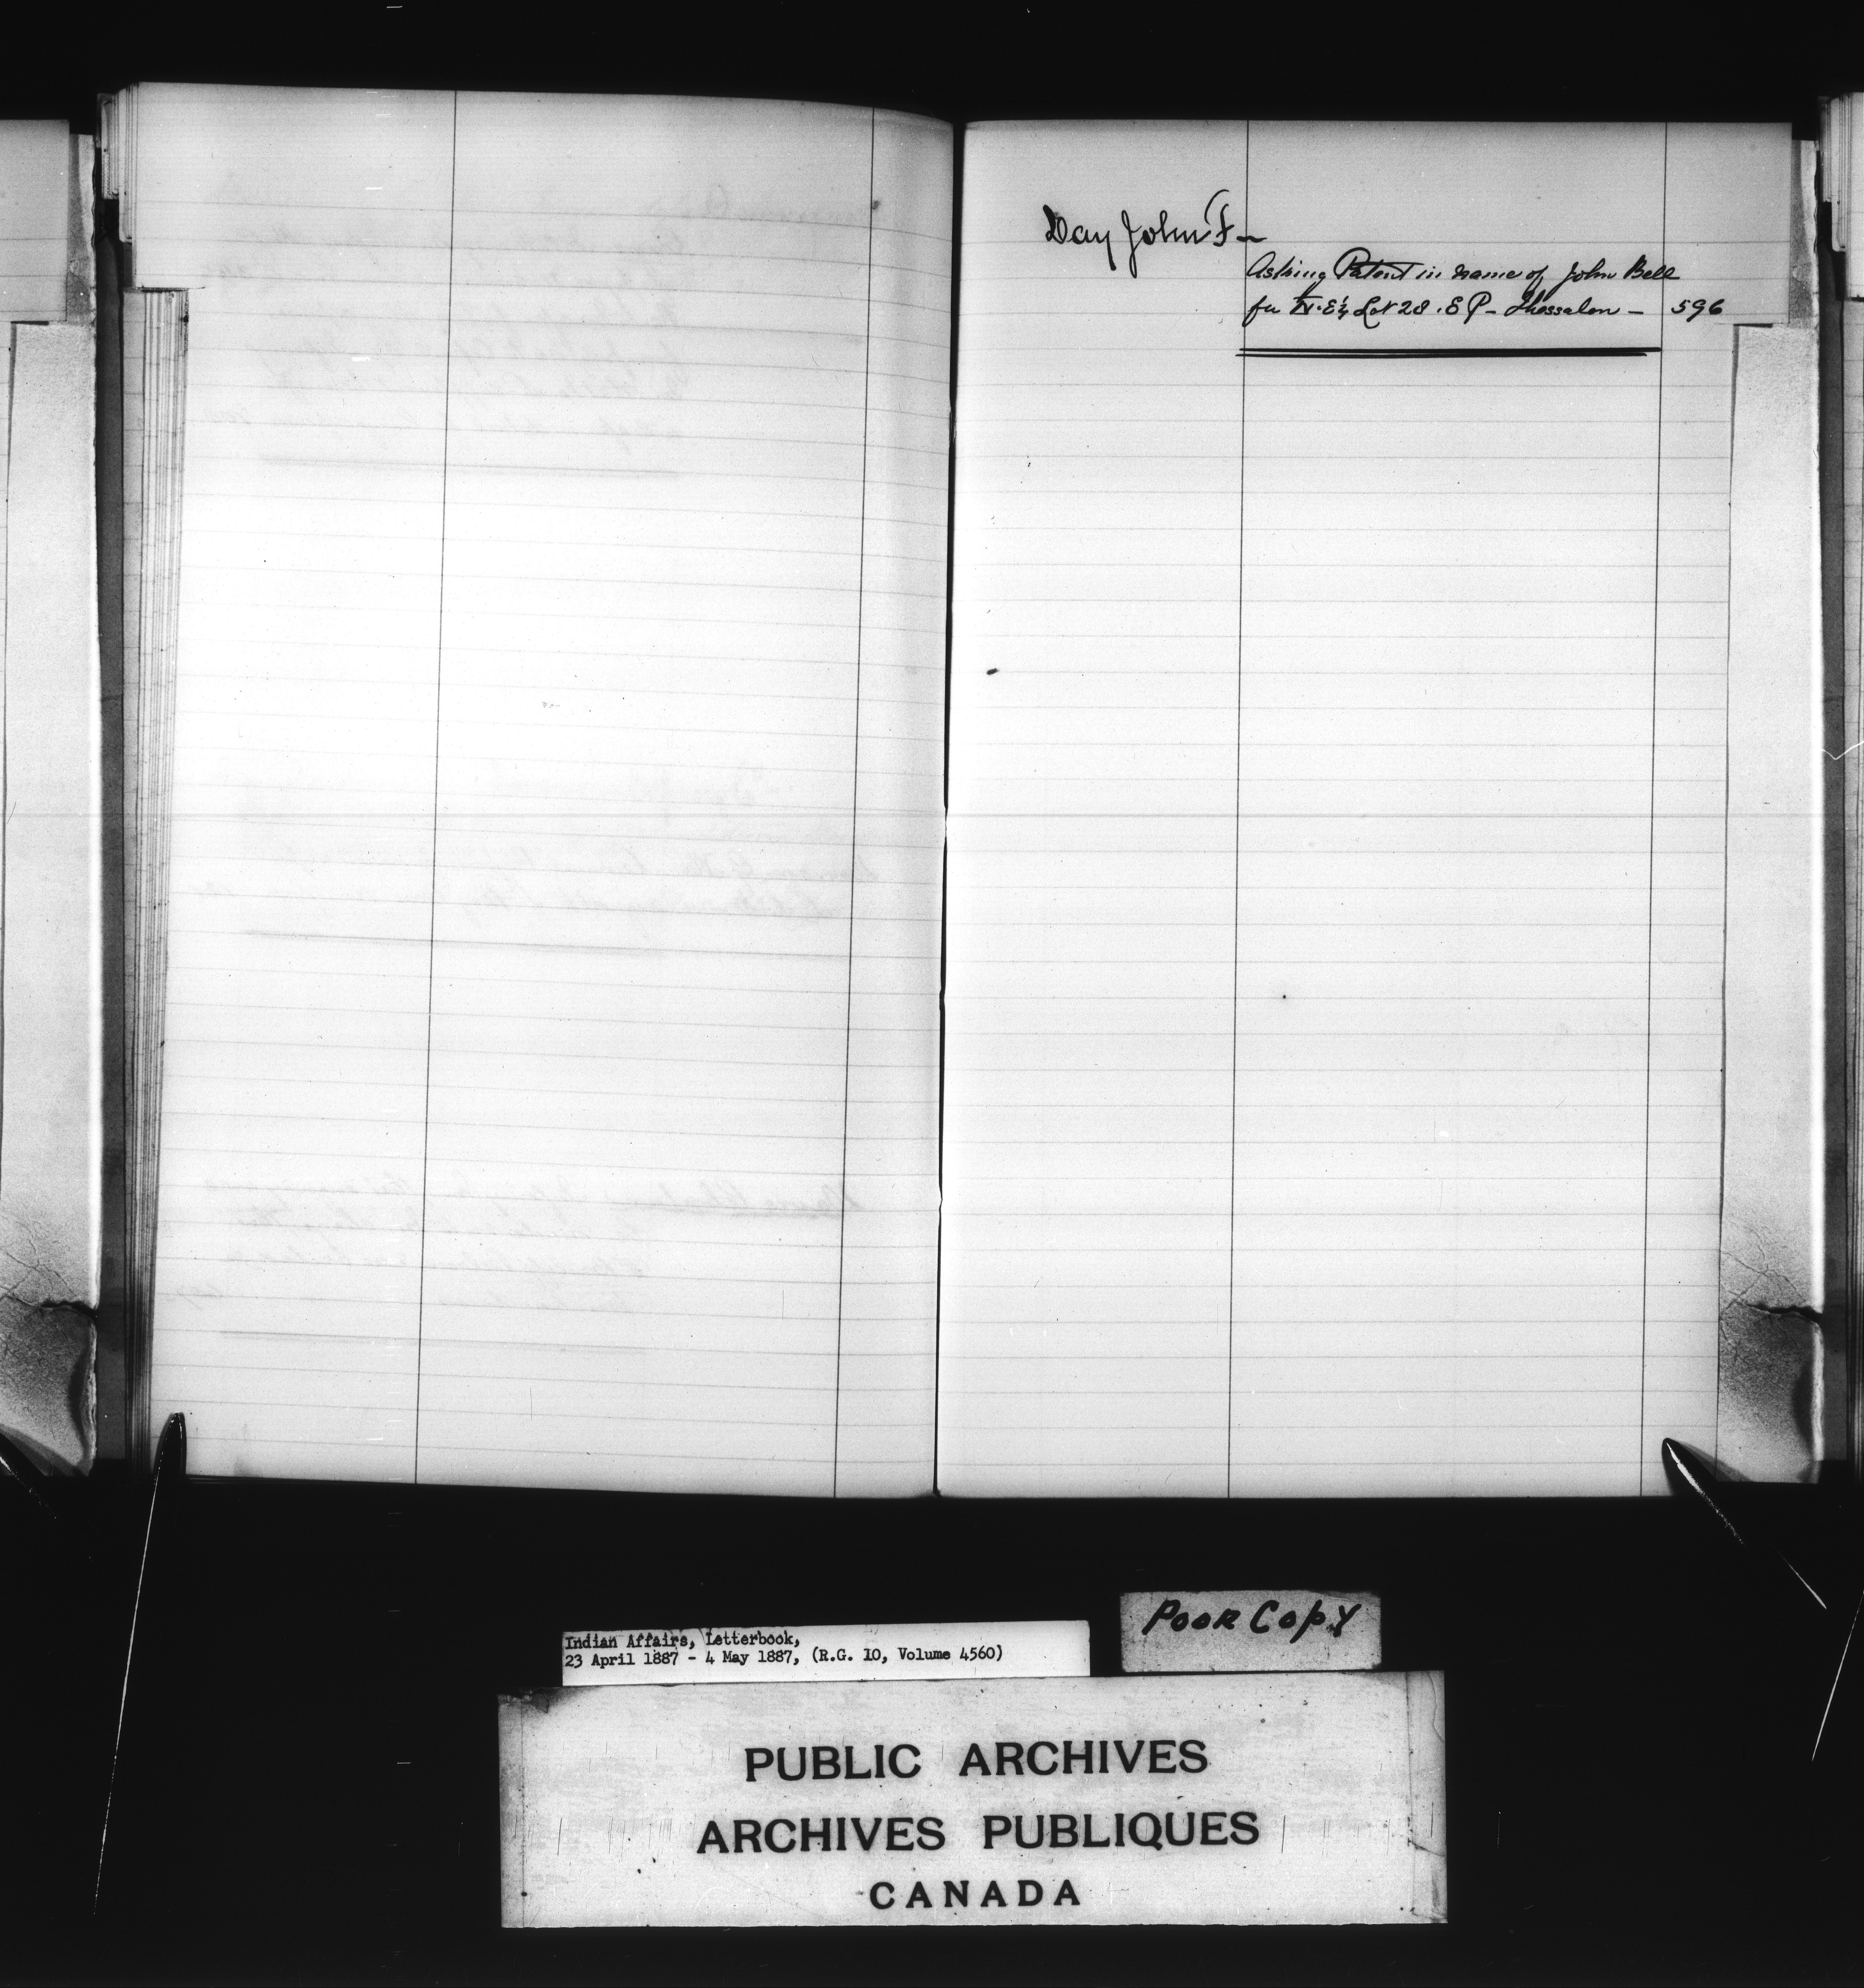 Day John F —
Asking Patent in name of John Bell
for N.E¼ Lot 28. E P - Thessalon - 596
Indian Affairs, Letterbook,
23 April 1887 - 4 May 1887, (R.G. 10, Volume 4560)
POOR COPY
PUBLIC ARCHIVES
ARCHIVES PUBLIQUES
CANADA